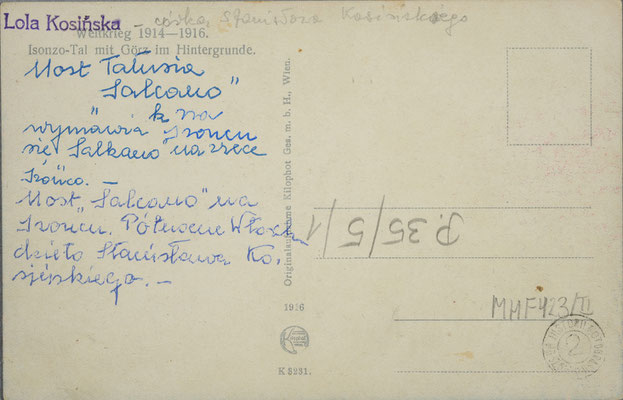 Lola Kosińska – córka Stanisława Kosińskiego
Weltkrieg 1914—1916.
Isonzo-Tal mit Görz im Hintergrunde.
Most Tatusia
„Salcano"
k na
wymawia Isoncu
się Salkano" na rzece
Isonco. —
Most „Salcano" na
Isoncu. Północne Włochy
dzieło Stanisława Ko-
sińskiego. —
Originalaufnahme Kilophot Ges. m. b. H., Wien.
1916
K 5231.
P.35/5/1
MHF423/II
2